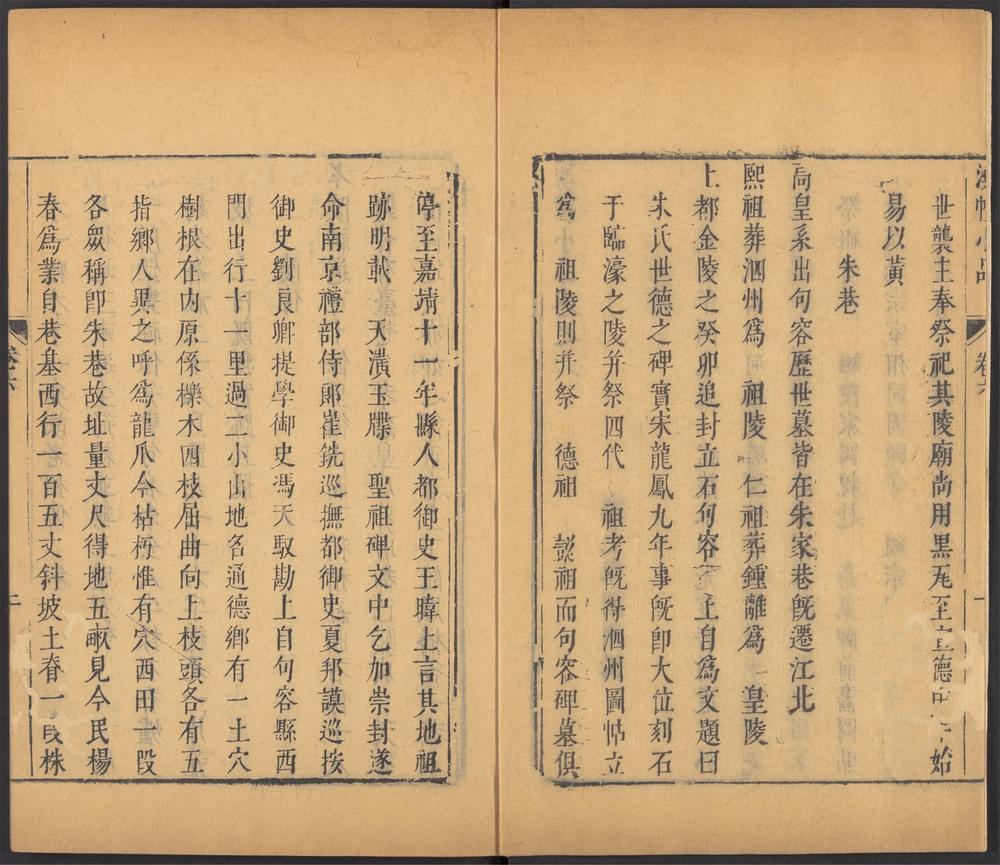 湧幢小品
卷六
世襲主奉祭祀其陵廟尚用黑瓦至宣德中始
易以黃
朱巷
高皇系出句容歷世墓皆在朱家巷既遷江北
熙祖葬泗州爲 祖陵 仁祖葬鍾離爲 皇陵
上都金陵之癸卯追封立石句容 上自爲文題曰
朱氏世德之碑實宋龍鳳九年事既即大位刻石
于臨濠之陵并祭四代 祖考既得泗州圖帖立
爲 祖陵則并祭 德祖 懿祖而句容碑墓俱
停至嘉靖十一年縣人都御史王暐上言其地祖
跡明載 天潢玉牒 聖祖碑文中乞加崇封遂
命南京禮部侍郎崔銑巡撫都御史夏邦謨巡按
御史劉良卿提學御史馮天馭勘上自句容縣西
門出行十一里過二小山地名通德鄉有一土穴
樹根在内原係櫟木四枝屈曲向上枝頭各有五
指鄉人異之呼爲龍爪今枯朽惟有穴西田一段
各衆稱卽朱巷故址量丈尺得地五畝見今民楊
春爲業自巷基西行一百五丈斜坡土脊一段株
卷六